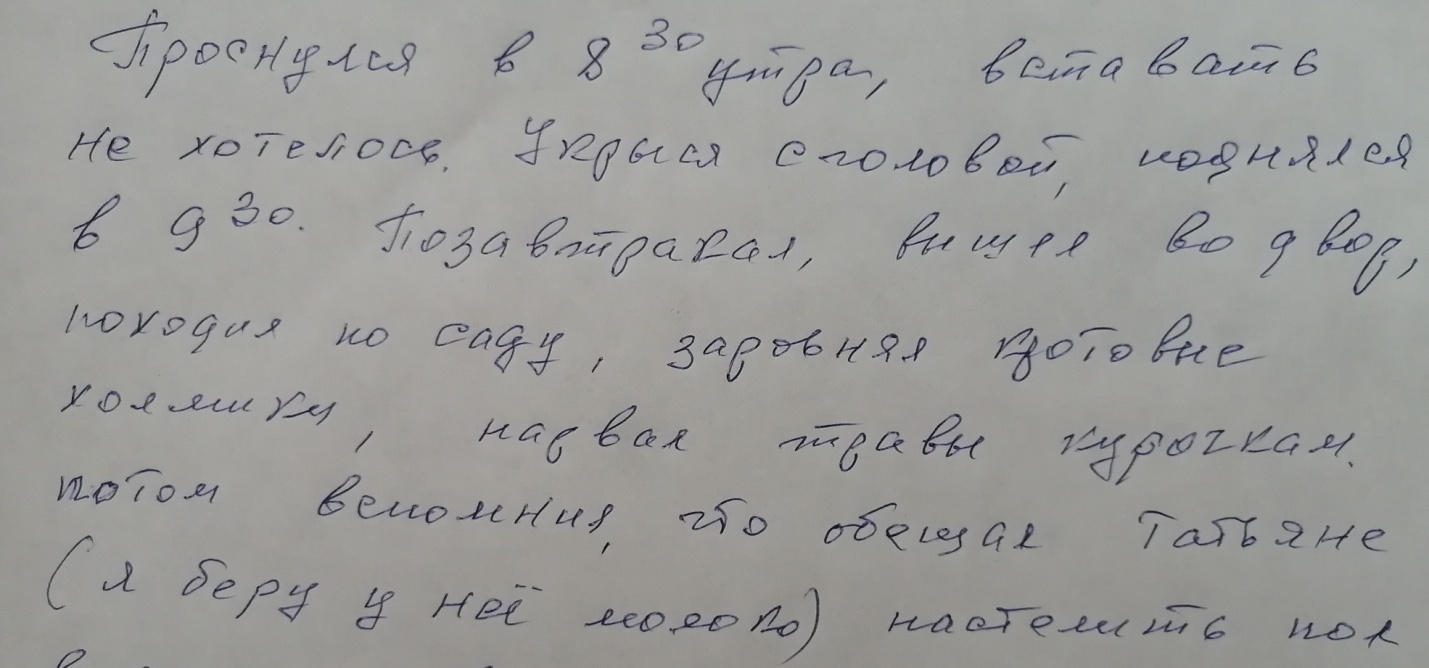 Проснулся в 8 30 утра, вставать
не хотелось. Укрыся с головой, поднялся
в 9 30. Позавтракал, вышел во двор,
походил по саду, заровнял кротовые
холмики, нарвал травы курочкам.
потом вспомнил, что обещал Татьяне
(я беру у неё молоко) настелить пол